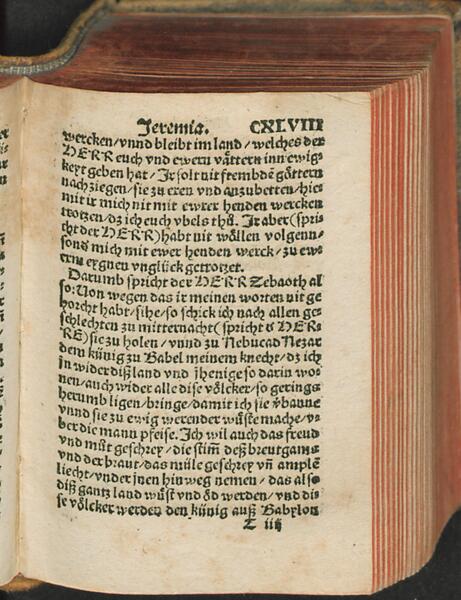 Jeremia. CXLVIII
wercken/vnnd bleibt im land/welches der
HERR euch vnd ewern vättern inn ewig-
keyt geben hat/Ir solt nit frembdē göttern
nachziegen/sie zu eren vnd anzubetten/hie-
mit ir mich nit mit ewrer henden wercken
trotzen/dz ich euch vbels thů. Ir aber(spri-
cht der HERR)habt nit wöllen volgenn/
sond mich mit ewer henden werck/zu ew-
erm eygnen vnglück getrotzet.
Darumb spricht der HERR Zebaoth al
so: Von wegen das ir meinen worten nit ge
horcht habt/sihe/so schick ich nach allen ge-
schlechten zu mitternacht(spricht d HER-
RE)sie zu holen/vnnd zu Nebucad Nezar
dem künig zu Babel meinem knecht/dz ich
jn wider diß land vnd jhenige so darin wo-
nen/auch wider alle dise völcker/so gerings
herumb ligen/bringe/damit ich sie v̄banne
vnnd sie zu ewig werender wüste mache/v-
ber die mann pfeise. Ich wil auch das freud
vnd můt geschrey/die stim̄ deß breutgams
vnd der braut/das müle geschrey vn̄ ampelē
liecht/vnder jnen hin weg nemen/das also
diß gantz land wüst vnd öd werden/vnd di-
se völcker werden den künig auß Babylon
T iiij